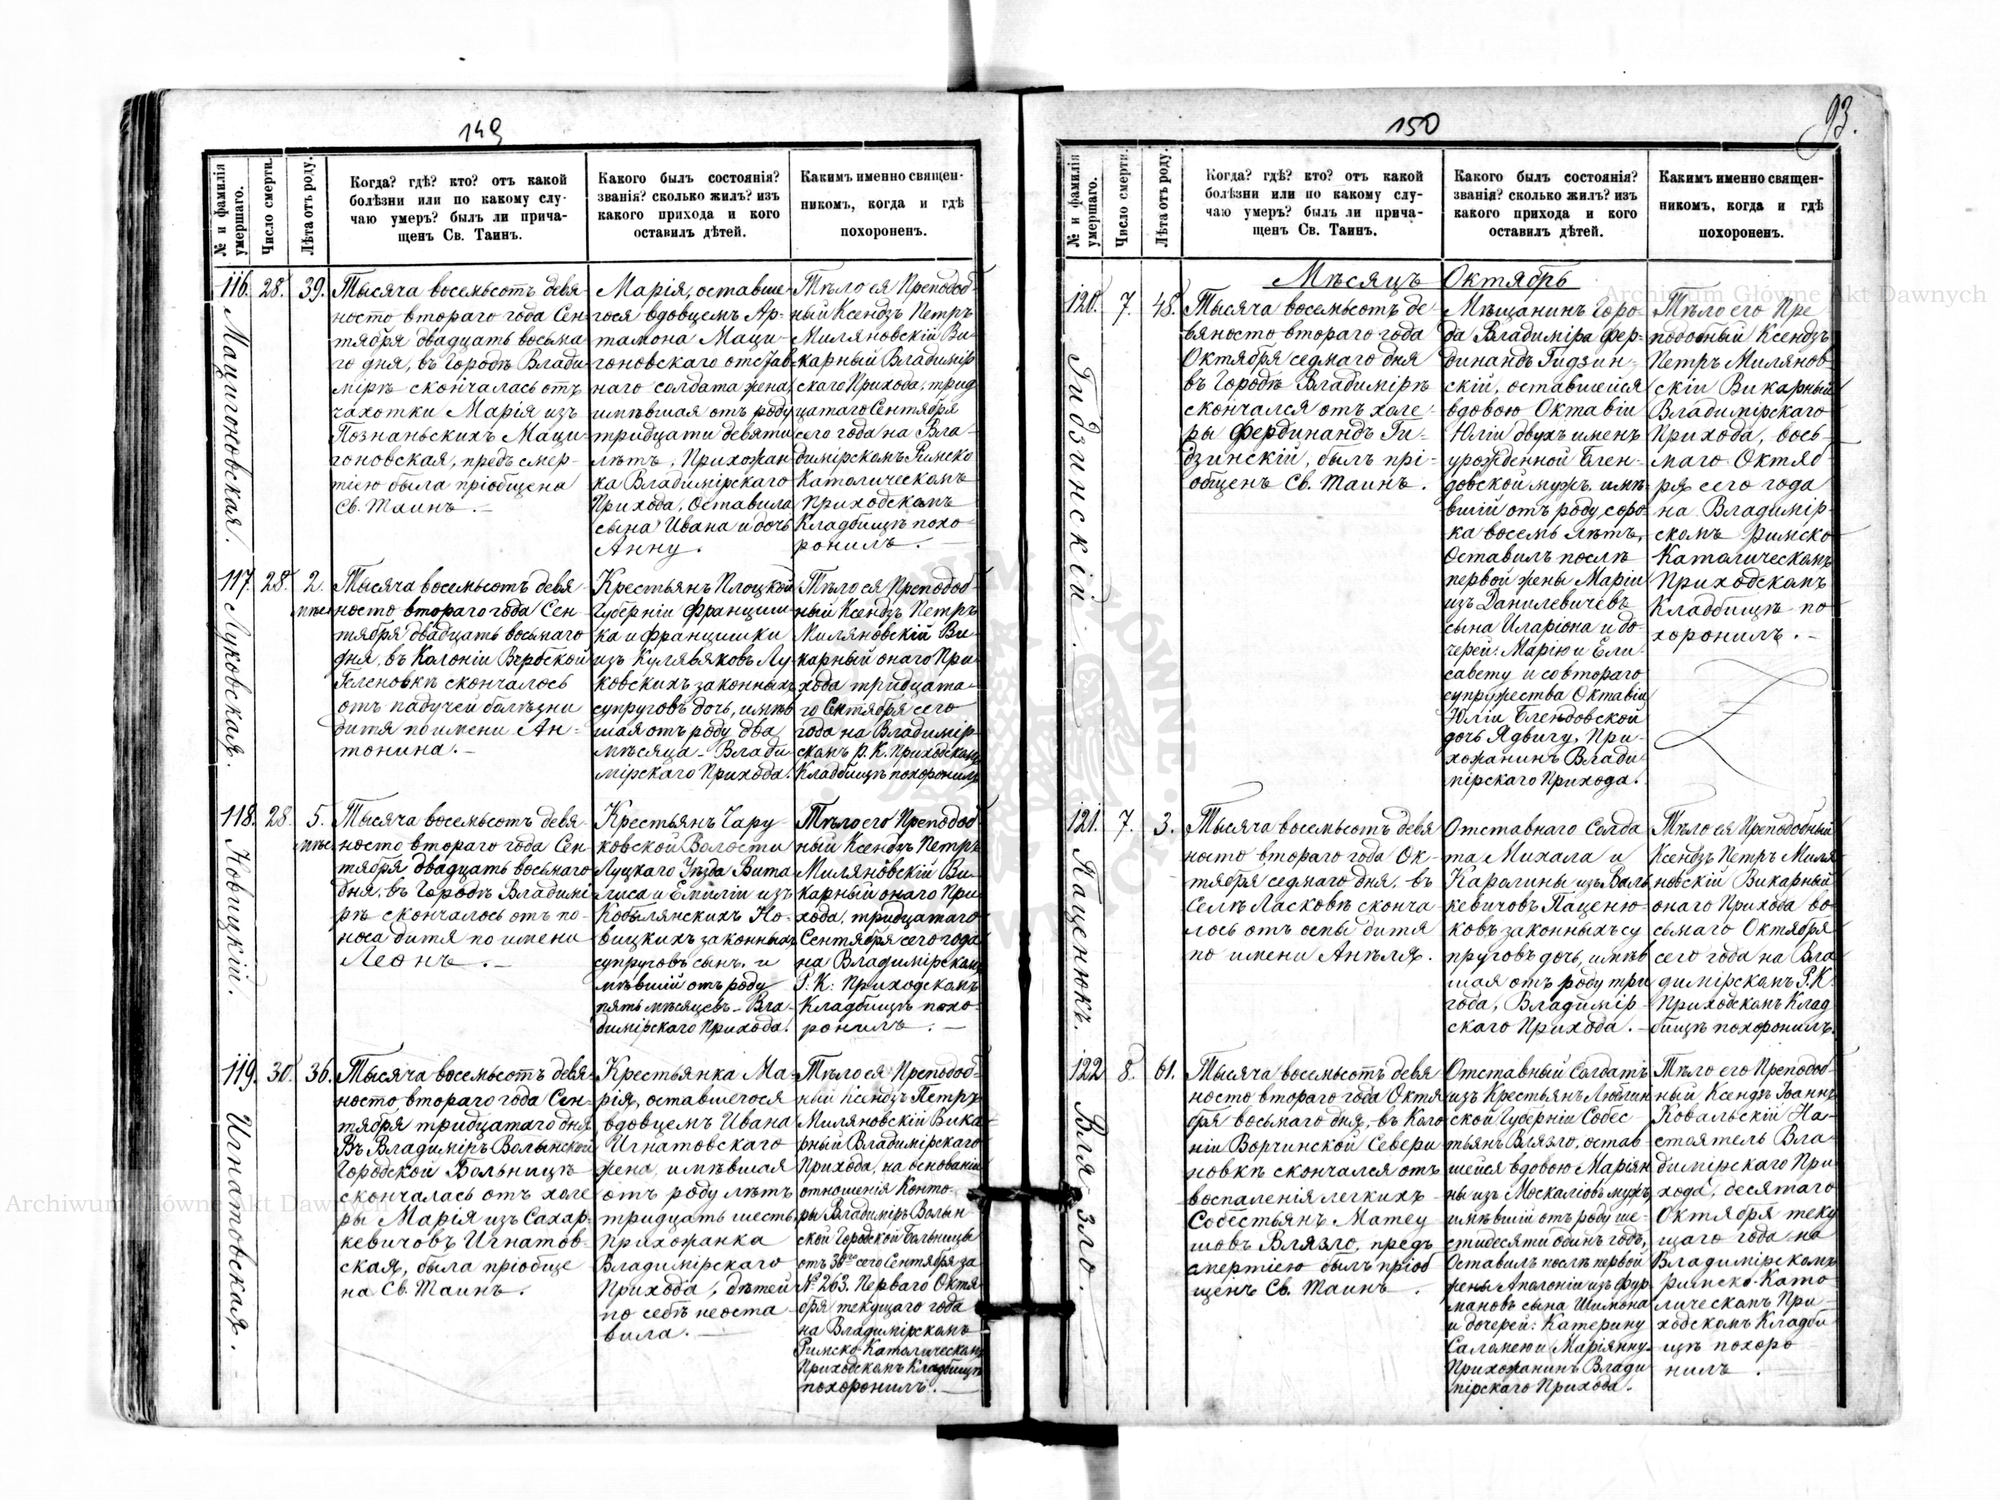 149
№ и фамилія умершаго.
Число смерти.
Лѣта отъ роду.
Когда? гдѣ? кто? отъ какой
болѣзни или по какому слу-
чаю умеръ? былъ ли прича-
щенъ Св. Таинъ.
Какого былъ состоянія?
званія? сколько жилъ? изъ
какого прихода и кого
оставилъ дѣтей.
Какимъ именно священ-
никомъ, когда и гдѣ
похороненъ.
116. 28. 39.
Мацигоновская.
Тысяча восемьсотъ девя-
носто втораго года Сен-
тября двадцать восьма-
го дня, въ Городѣ Влади-
мірѣ скончалась отъ
чахотки Марія изъ
Познаньскихъ Маци-
гоновская, предъ смер-
тію была пріобщена
Св. Таинъ.
Марія, оставше-
гося вдовцемъ Ар-
тамона Маци-
гоновскаго отстав-
наго солдата жена,
имѣвшая отъ роду
тридцати девяти
лѣтъ, Прихожан-
ка Владимірскаго
Прихода, Оставила
сына Ивана и дочь
Анну.
Тѣло ея Преподоб-
ный Ксендзъ Петръ
Миляновскій Ви-
карный Владимір-
скаго Прихода, трид-
цатаго Сентября
сего года на Вла-
димірскомъ Римско
Католическомъ
Приходскомъ
Кладбищѣ похо-
ронилъ.
117. 28. 2. мѣс.
Луковская.
Тысяча восемьсотъ девя-
носто втораго года Сен-
тября двадцать восьмаго
дня, въ Колоніи Вербской
Геленовкѣ скончалось
отъ падучей болѣзни
дитя по имени Ан-
тонина.
Крестьянъ Плоцкой
Губерніи Францишка
и Францишки
изъ Кулявяковъ Лу-
ковскихъ законныхъ
супруговъ дочь, имѣв
шая отъ роду два
мѣсяца. Влади-
мірскаго Прихода.
Тѣло ея Преподоб-
ный Ксендзъ Петръ
Миляновскій Ви-
карный онаго При-
хода тридцата-
го Сентября сего
года на Владимір-
скомъ Р. К. Приходскомъ
Кладбищѣ похоронилъ
118. 28. 5. мѣс.
Новицкій.
Тысяча восемьсотъ девя-
носто втораго года Сен-
тября двадцать восьмаго
дня, въ Городѣ Владимі-
рѣ скончалось отъ по-
носа дитя по имени
Леонъ.
Крестьянъ Чару-
ковской Волости
Луцкаго Уѣзда Вита-
лиса и Емиліи изъ
Кобылянскихъ Но-
вицкихъ законныхъ
супруговъ сынъ, и
мѣвшій отъ роду
пять мѣсяцевъ. Вла-
димірскаго Прихода.
Тѣло его Преподоб
ный Ксендзъ Петръ
Миляновскій Ви-
карный онаго При-
хода, тридцатаго
Сентября сего года
на Владимірскомъ
Р. К. Приходскомъ
Кладбищѣ похо-
ронилъ.
119. 30. 36.
Игнатовская.
Тысяча восемьсотъ девя-
носто втораго года Сен-
тября тридцатаго дня
Въ Владиміръ Волынской
Городской Больницѣ
скончалась отъ холе
ры Марія изъ Сахар-
кевичовъ Игнатов-
ская, была пріобще
на Св. Таинъ.
Крестьянка Ма-
рія, оставшегося
вдовцемъ Ивана
Игнатовскаго
жена, имѣвшая
отъ роду лѣтъ
тридцать шесть,
Прихожанка
Владимірскаго
Прихода, дѣтей
по себѣ не оста
вила.
Тѣло ея Преподоб-
ный Ксендзъ Петръ
Миляновскій Вика-
рный Владимірскаго
Прихода, на основаніи
отношенія Конто-
ры Владиміръ Волын
ской Городской Больницы
отъ 30го сего Сентября за
№ 263. Перваго Октя
бря текущаго года
на Владимірскомъ
Римско-Католическомъ
Приходскомъ Кладбищѣ
похоронилъ.
150
93.
№ и фамилія умершаго.
Число смерти.
Лѣта отъ роду.
Когда? гдѣ? кто? отъ какой
болѣзни или по какому слу-
чаю умеръ? былъ ли прича-
щенъ Св. Таинъ.
Какого былъ состоянія?
званія? сколько жилъ? изъ
какого прихода и кого
оставилъ дѣтей.
Какимъ именно священ-
никомъ, когда и гдѣ
похороненъ.
Мѣсяцъ Октябрь
120. 7. 48.
Гидзинскій.
Тысяча восемьсотъ де-
вяносто втораго года
Октября седмаго дня
въ Городѣ Владимірѣ
скончался отъ холе-
ры Фердинандъ Ги-
дзинскій, былъ прі-
общенъ Св. Таинъ.
Мѣщанинъ Горо-
да Владиміра Фер-
динандъ Гидзин-
скій, оставшейся
вдовою Октавіи
Юліи двухъ именъ
урожденной Блен-
довской мужъ, имѣ
вшій отъ роду соро
ка восемь лѣтъ,
Оставилъ послѣ
первой жены Маріи
изъ Данилевичевъ
сына Иларіона и до-
черей: Марію и Ели-
савету и со втораго
супружества Октавіи
Юліи Блендовской
дочь Ядвигу, При-
хожанинъ Влади-
мірскаго Прихода.
Тѣло его Пре
подобный Ксендзъ
Петръ Милянов-
скій Викарный
Владимірскаго
Прихода, вось-
маго Октяб-
ря сего года
на Владимір-
скомъ Римско
Католическомъ
Приходскомъ
Кладбищѣ по-
хоронилъ.
121. 7. 3.
Паценюкъ.
Тысяча восемьсотъ девя
носто втораго года Ок-
тября седмаго дня, въ
Селѣ Ласковѣ сконча
лось отъ оспы дитя
по имени Анѣля.
Отставнаго Солда
та Михала и
Каролины изъ Валь
кевичовъ Паценю-
ковъ законныхъ су
пруговъ дочь, имѣв
шая отъ роду три
года, Владимір
скаго Прихода.
Тѣло ея Преподобный
Ксендзъ Петръ Миля
новскій Викарный
онаго Прихода во-
сьмаго Октября
сего года на Вла
димірскомъ Р. К.
Приходскомъ Клад
бищѣ похоронилъ.
122 8. 61.
Влязло.
Тысяча восемьсотъ девя
носто втораго года Октя
бря восьмаго дня, въ Коло
ніи Ворчинской Севери
новкѣ скончался отъ
воспаленія легкихъ
Собестьянъ Матеу
шовъ Влязло, предъ
смертію былъ пріоб
щенъ Св. Таинъ.
Отставный Солдатъ
изъ Крестьянъ Люблин
ской Губерніи Собес-
тьянъ Влязло, остав-
шейся вдовою Маріян
ны изъ Москаліовъ мужъ,
имѣвшій отъ роду ше-
стидесяти одинъ годъ,
Оставилъ послѣ первой
жены Аполоніи изъ Фур
мановъ сына Шимона
и дочерей: Катерину
Саломею и Маріянну
Прихожанинъ Влади
мірскаго Прихода.
Тѣло его Преподоб-
ный Ксендзъ Іоаннъ
Ковальскій На-
стоятель Вла-
димірскаго При-
хода, десятаго
Октября теку
щаго года на
Владимірскомъ
Римско-Като
лическомъ При-
ходскомъ Кладби-
щѣ похоро
нилъ.
Archiwum Główne Akt Dawnych
Archiwum Główne Akt Dawnych